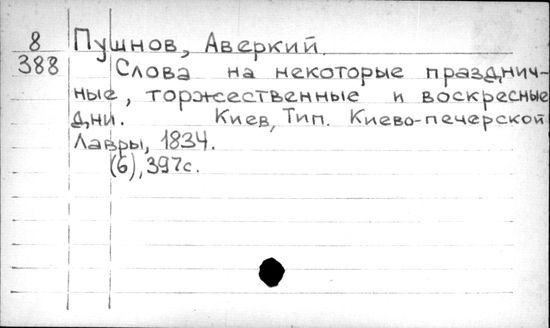 8 Пушнов, Аверкий.
388 Слова на некоторые празднич-
ные, торжественные и воскресные
дни. Киев, Тип. Киево-печерской
Лавры, 1834.
(6), 397с.